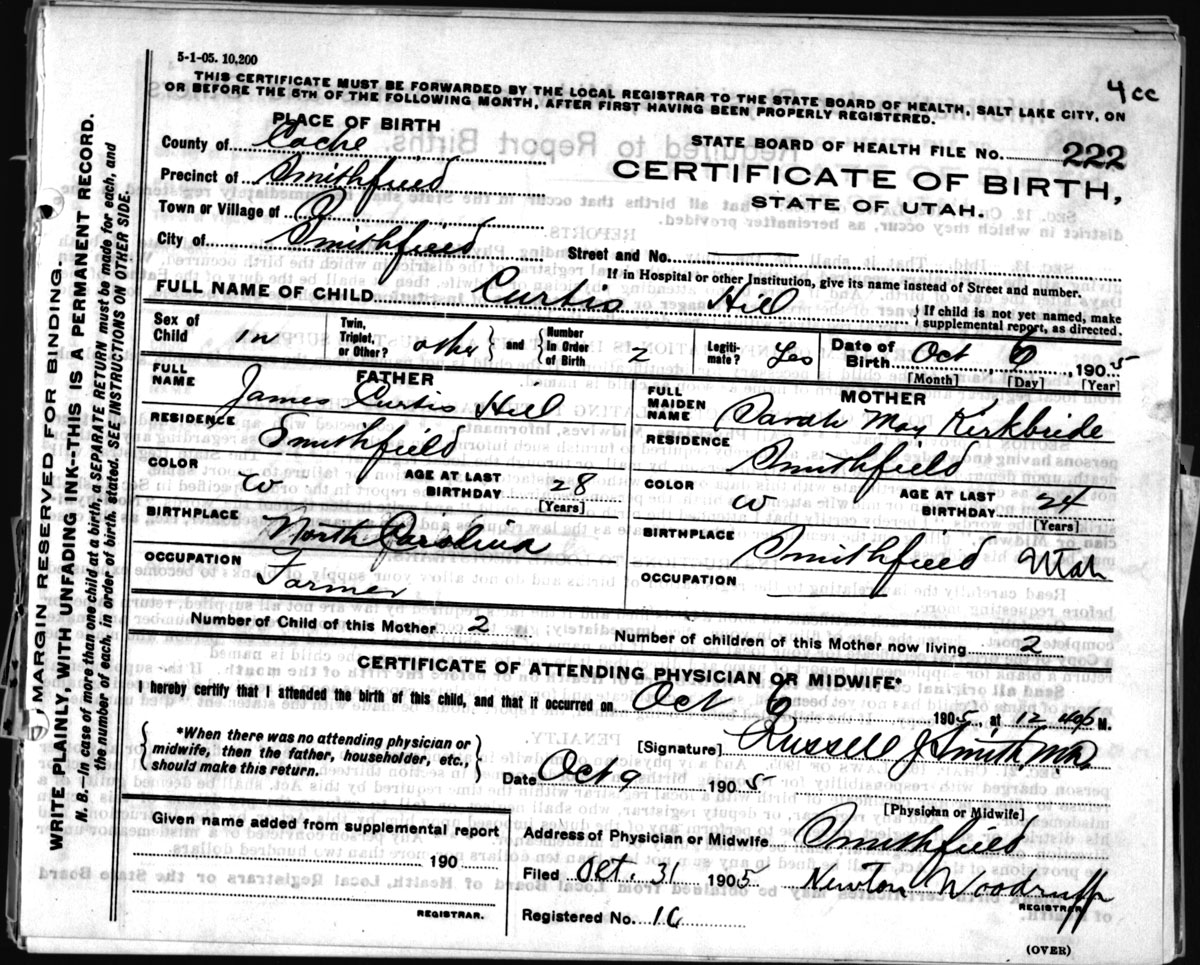 5-1-05. 10,200
4 cc
THIS CERTIFICATE MUST BE FORWARDED BY THE LOCAL REGISTRAR TO THE STATE BOARD OF HEALTH, SALT LAKE CITY, ON
OR BEFORE THE 5TH OF THE FOLLOWING MONTH, AFTER FIRST HAVING BEEN PROPERLY REGISTERED.
MARGIN RESERVED FOR BINDING.
WRITE PLAINLY, WITH UNFADING INK--THIS IS A PERMANENT RECORD.
N. B.--In case of more than one child at a birth, a SEPARATE RETURN must be made for each, and
the number of each, in order of birth, stated. SEE INSTRUCTIONS ON OTHER SIDE.
PLACE OF BIRTH
County of Cache
Precinct of Smithfield
Town or Village of
City of Smithfield
STATE BOARD OF HEALTH FILE No. 222
CERTIFICATE OF BIRTH,
STATE OF UTAH.
Street and No.
If in Hospital or other Institution, give its name instead of Street and number.
FULL NAME OF CHILD Curtis Hill
If child is not yet named, make
supplemental report, as directed.
Sex of Child m
Twin, Triplet, or Other? other and Number in Order of Birth 2
Legitimate? Yes
Date of Birth Oct 6, 1905
[Month] [Day] [Year]
FATHER
FULL NAME James Curtis Hill
RESIDENCE Smithfield
COLOR W AGE AT LAST BIRTHDAY 28
[Years]
BIRTHPLACE North Carolina
OCCUPATION Farmer
MOTHER
FULL MAIDEN NAME Sarah May Kirkbride
RESIDENCE Smithfield
COLOR W AGE AT LAST BIRTHDAY 24
[Years]
BIRTHPLACE Smithfield Utah
OCCUPATION
Number of Child of this Mother 2 Number of children of this Mother now living 2
CERTIFICATE OF ATTENDING PHYSICIAN OR MIDWIFE*
I hereby certify that I attended the birth of this child, and that it occurred on Oct 6 1905, at 12 M.
*When there was no attending physician or
midwife, then the father, householder, etc.,
should make this return.
[Signature] Russell J Smith MD
Date Oct 9 1905
[Physician or Midwife]
Given name added from supplemental report
190
REGISTRAR.
Address of Physician or Midwife Smithfield
Filed Oct. 31 1905 Newton Woodruff
REGISTRAR
Registered No. 16
(OVER)